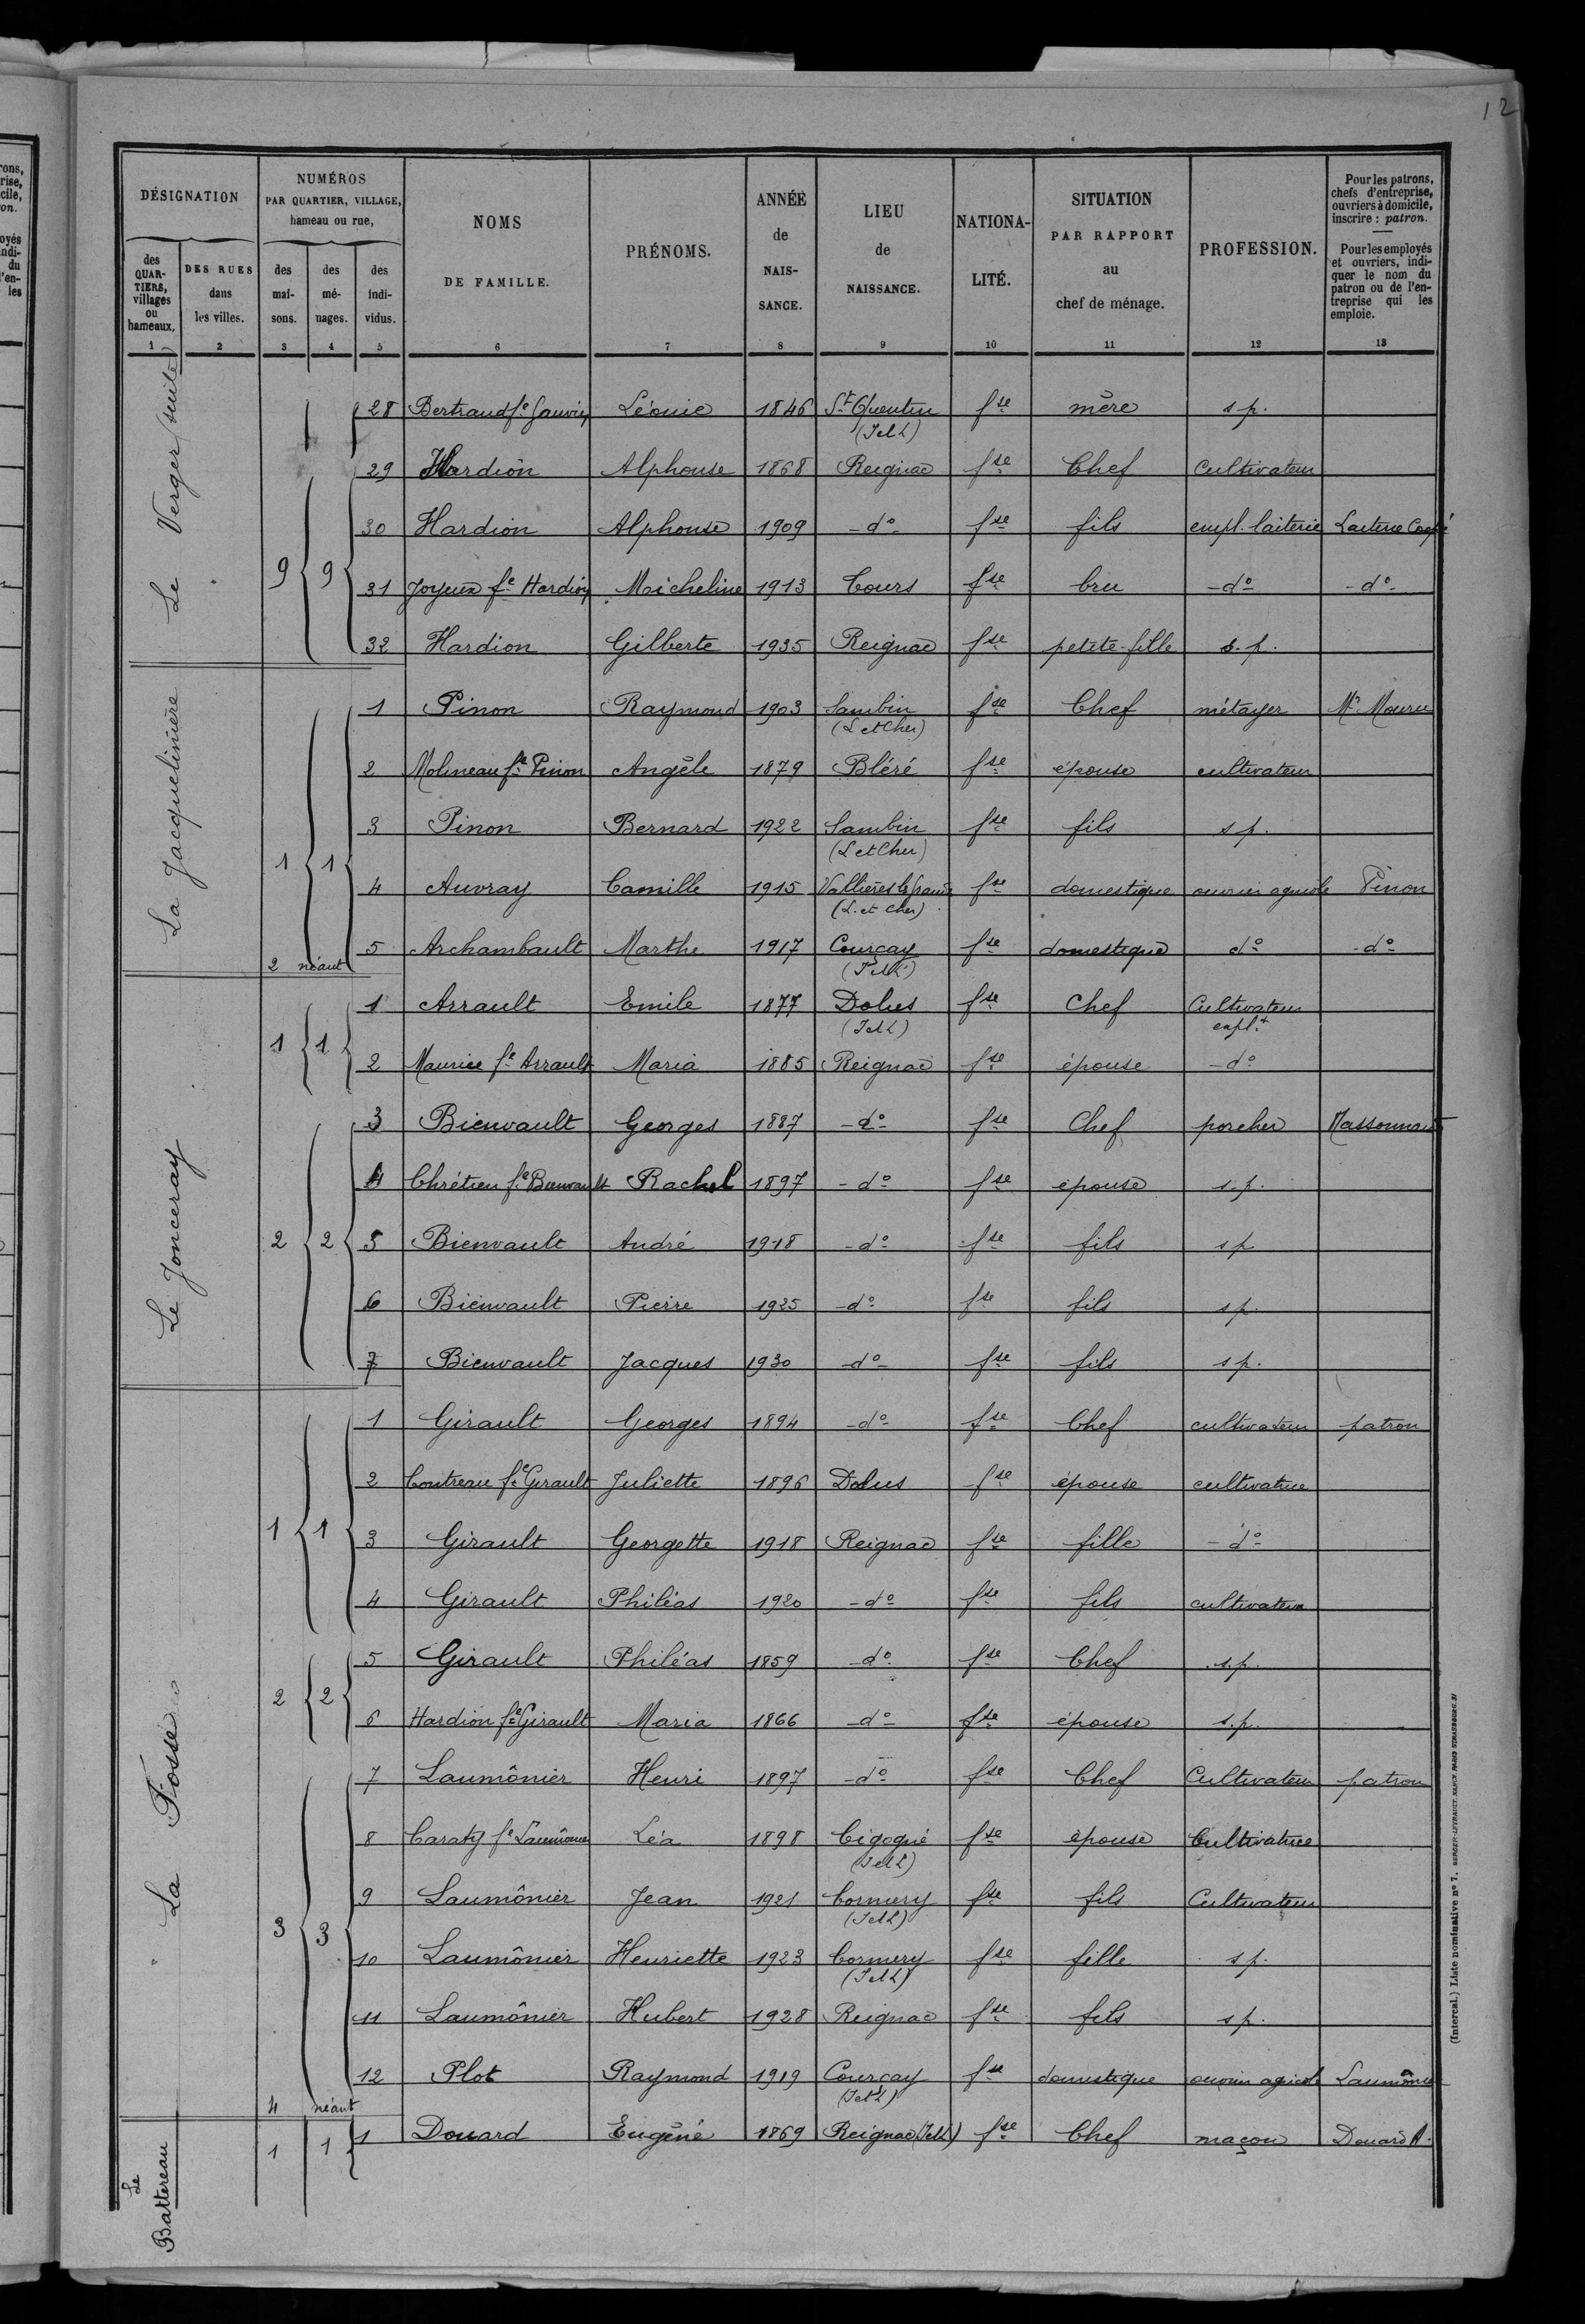 12
DÉSIGNATION
NUMÉROS
PAR QUARTIER, VILLAGE,
hameau ou rue,
NOMS
DE FAMILLE.
PRÉNOMS.
ANNÉE
de
NAIS-
SANCE.
LIEU
de
NAISSANCE.
NATIONA-
LITÉ.
SITUATION
PAR RAPPORT
au
chef de ménage.
PROFESSION.
Pour les patrons,
chefs d'entreprise,
ouvriers à domicile,
inscrire : patron.
Pour les employés
et ouvriers, indi-
quer le nom du
patron ou de l'en-
treprise qui les
emploie.
des
QUAR-
TIERS,
villages
ou
hameaux.
DES RUES
dans
les villes.
des
mai-
sons.
des
mé-
nages.
des
indi-
vidus.
1 2 3 4 5 6 7 8 9 10 11 12 13
Le Verger (suite)
28 Bertrand fe Gauvin Léonie 1846 St Quentin fse mère s.p.
(I et L)
29 Hardion Alphonse 1868 Reignac fse Chef Cultivateur
30 Hardion Alphonse 1909 -do- fse fils empl. laiterie Laiterie Coopé
9 9
31 Joyeux fe Hardion Micheline 1913 Tours fse bru -do- -do-
32 Hardion Gilberte 1935 Reignac fse petite-fille s.p.
La Jacquelinière
1 Pinon Raymond 1903 Sambin fse Chef métayer Mr Mouru
(L et Cher)
2 Molineau fe Pinon Angèle 1879 Bléré fse épouse cultivateur
3 Pinon Bernard 1922 Sambin fse fils s.p.
(L et Cher)
1 1
4 Auvray Camille 1915 Vallières les grandes fse domestique ouvrier agricole Pinon
(L. et Cher)
5 Archambault Marthe 1917 Courçay fse domestique do -do
(I et L)
2 néant
Le Jonceray
1 Arrault Emile 1877 Dolus fse Chef Cultivateur
(I et L) expl.t
1 1
2 Maurice fe Arrault Maria 1885 Reignac fse épouse -do
3 Bienvault Georges 1887 -do- fse Chef porcher
4 Chrétien fe Bienvault Rachel 1897 -do fse épouse s.p.
2 2 5 Bienvault André 1918 -do fse fils s.p
6 Bienvault Pierre 1925 -do- fse fils s.p.
7 Bienvault Jacques 1930 -do- fse fils s.p.
La Fosse
1 Girault Georges 1894 -do- fse Chef cultivateur patron
2 Coutreau fe Girault Juliette 1896 Dolus fse épouse cultivatrice
1 1 3 Girault Georgette 1918 Reignac fse fille -do-
4 Girault Philéas 1920 -do fse fils cultivateur
5 Girault Philéas 1859 -do- fse Chef s.p.
2 2
6 Hardion fe Girault Maria 1866 -do- fse épouse s.p.
7 Laumônier Henri 1897 -do- fse Chef Cultivateur patron
8 Caraty fe Laumônier Léa 1898 Cigogné fse épouse Cultivatrice
(I et L)
9 Laumônier Jean 1921 Cormery fse fils Cultivateur
(I et L)
3 3
10 Laumônier Henriette 1923 Cormery fse fille s.p.
(I et L)
11 Laumônier Hubert 1928 Reignac fse fils s.p.
12 Plot Raymond 1919 Courçay fse domestique ouvrier agricole Laumônier
(I et L)
4 néant
Le
Battereau
1 1 1 Douard Eugène 1869 Reignac (I et L) fse Chef maçon Douard A.
(Intercal.) Liste nominative n° 7. BERGER-LEVRAULT, NANCY-PARIS-STRASBOURG.